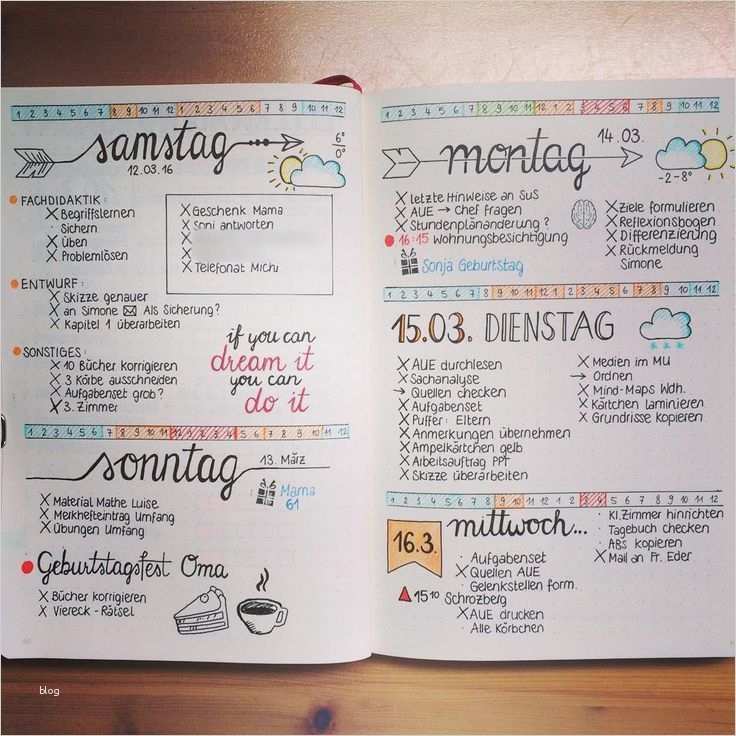 1 2 3 4 5 6 7 8 9 10 11 12 1 2 3 4 5 6 7 8 9 10 11 12
samstag
12.03.16
6°
0°
FACHDIDAKTIK:
X Begriffslernen
· Sichern
X Üben
X Problemlösen
X Geschenk Mama
X Soni antworten
X
X
X Telefonat Michi
ENTWURF:
X Skizze genauer
X an Simone Als Sicherung?
X Kapitel 1 überarbeiten
SONSTIGES:
X 10 Bücher korrigieren
X 3 Körbe ausschneiden
X Aufgabenset grob?
X 3. Zimmer
if you can
dream it
you can
do it
1 2 3 4 5 6 7 8 9 10 11 12 1 2 3 4 5 6 7 8 9 10 11 12
sonntag
13. März
Mama
61
X Material Mathe Luise
X Merkhefteintrag Umfang
X Übungen Umfang
Geburtstagsfest Oma
X Bücher korrigieren
X Viereck-Rätsel
1 2 3 4 5 6 7 8 9 10 11 12 1 2 3 4 5 6 7 8 9 10 11 12
montag
14.03.
-2-8°
X letzte Hinweise an SuS
X AUE → Chef fragen
X Stundenplanänderung?
16:15 Wohnungsbesichtigung
Sonja Geburtstag
X Ziele formulieren
X Reflexionsbogen
X Differenzierung
X Rückmeldung
Simone
1 2 3 4 5 6 7 8 9 10 11 12 1 2 3 4 5 6 7 8 9 10 11 12
15.03. DIENSTAG
X AUE durchlesen
X Sachanalyse
→ Quellen checken
X Aufgabenset
X Puffer: Eltern
X Anmerkungen übernehmen
X Ampelkärtchen gelb
X Arbeitsauftrag PPT
X Skizze überarbeiten
X Medien im MU
→ Ordnen
X Mind-Maps Wdh.
X Kärtchen laminieren
X Grundrisse kopieren
1 2 3 4 5 6 7 8 9 10 11 12 1 2 3 4 5 6 7 8 9 10 11 12
16.3.
mittwoch...
· Aufgabenset
X Quellen AUE
· Gelenkstellen form.
15 10 Schrozberg
X AUE drucken
· Alle Körbchen
· Kl.Zimmer hinrichten
· Tagebuch checken
· ABs kopieren
X Mail an Fr. Eder
blog